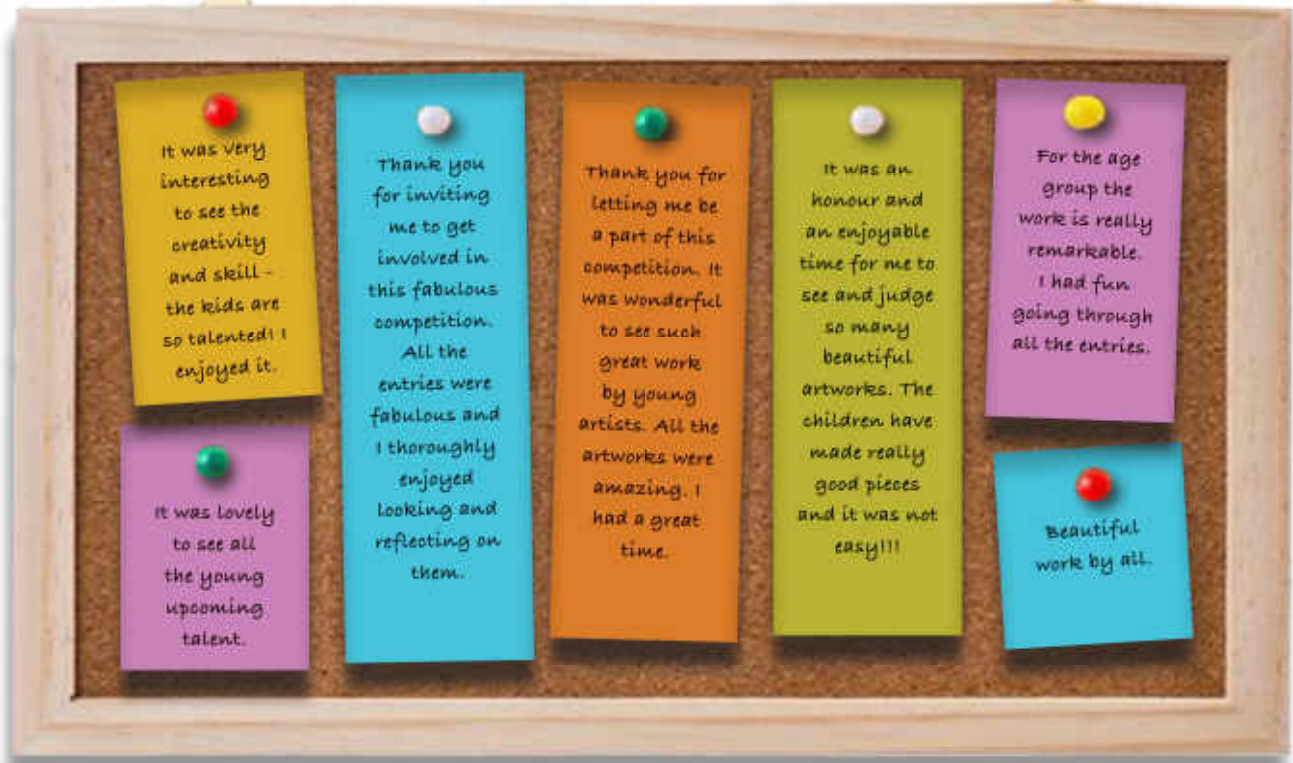 It was very
interesting
to see the
creativity
and skill -
the kids are
so talented! I
enjoyed it.
It was lovely
to see all
the young
upcoming
talent.
Thank you
for inviting
me to get
involved in
this fabulous
competition.
All the
entries were
fabulous and
I thoroughly
enjoyed
looking and
reflecting on
them.
Thank you for
letting me be
a part of this
competition. It
was wonderful
to see such
great work
by young
artists. All the
artworks were
amazing. I
had a great
time.
It was an
honour and
an enjoyable
time for me to
see and judge
so many
beautiful
artworks. The
children have
made really
good pieces
and it was not
easy!!!
For the age
group the
work is really
remarkable.
I had fun
going through
all the entries.
Beautiful
work by all.